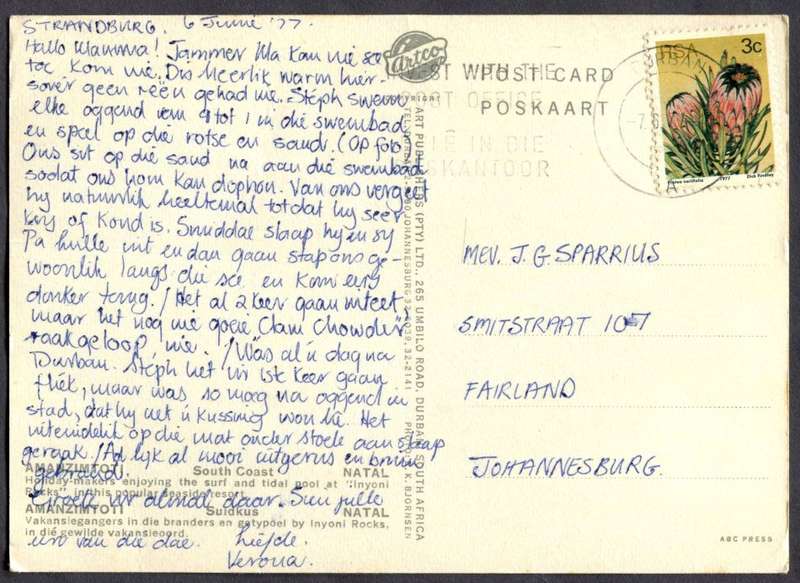 STRANDBURG. 6 Junie '77.
Hallo Mamma! Jammer Ma kan nie so
toe kom nie. Dis heerlik warm hier.
sover geen reën gehad nie. Steph swem
elke oggend van tot 1 in die swembad
en speel op die rotse en sand. (Op foto)
Ons sit op die sand na aan die swembad
sodat ons hom kan dophou. Van ons vergeet
hy natuurlik heeltemal totdat hy seer
kry of koud is. Smiddae slaap hy en sy
Pa hulle uit en dan gaan stap ons ge-
woonlik langs die see en kom eers
donker terug. / Het al 2 keer gaan uiteet,
maar het nog nie goeie "Clam Chowder"
raakgeloop nie. / Was al 'n dag na
Durban. Steph het vir 1ste keer gaan
fliek, maar was so moeg na oggend in
stad, dat hy net 'n kussing wou hê. Het
uiteindelik op die mat onder stoele aan slaap
geraak. / Ad lyk al mooi uitgerus en bruin
gebrand.
Groete vir almal daar. Sien julle
van die dae.
Liefde.
Verona.
AMANZIMTOTI South Coast NATAL
Holiday-makers enjoying the surf and tidal pool at 'Inyoni
Rocks' in this popular seaside resort.
AMANZIMTOTI Suidkus NATAL
Vakansiegangers in die branders en getypoel by Inyoni Rocks,
in dié gewilde vakansieoord.
Artco
COPYRIGHT
ART PUBLISHERS (PTY) LTD., 265 UMBILO ROAD, DURBAN, SOUTH AFRICA
JOHANNESBURG
PHOTO: K. BJORNSEN
POST CARD
POSKAART
WITH THE
POST OFFICE
IN DIE
POSKANTOOR
DURBAN
RSA
3c
1977
Dick Findlay
MEV. J.G. SPARRIUS
SMITSTRAAT 107
FAIRLAND
JOHANNESBURG.
ABC PRESS